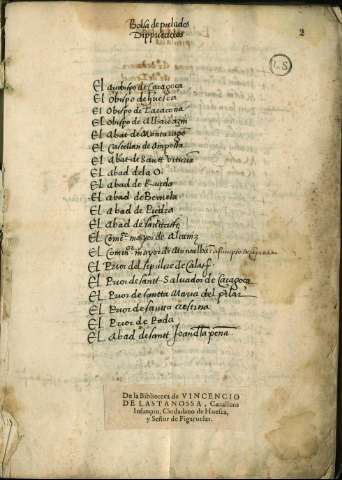 Bolsa de prelados
Dipputados
2
L S
El arçobispo de Caragoça
El obispo de huesca
El obispo de Taraçona
El obispo de Albarrazin
El Abat de Montaragon
El Castellan de Amposta
El Abat de Sanct Victorian
El abad de la O
El abad de Rueda
El abad de Beruela
El abad de Piedra
El Abad de
El Comor mayor de Alcaniz
El Comor mayor de Montalban
El Prior del sepulcre de Calat
El Prior de sanct Saluador de Caragoça
El Prior de sancta Maria del pilar
El Prior de sancta cristina
El Prior de Roda
El Abad de sanct Joan dela peña
De la Biblioteca de VINCENCIO
DE LASTANOSSA, Cauallero
Infançon, Ciudadano de Huesca,
y Señor de Figaruelas.